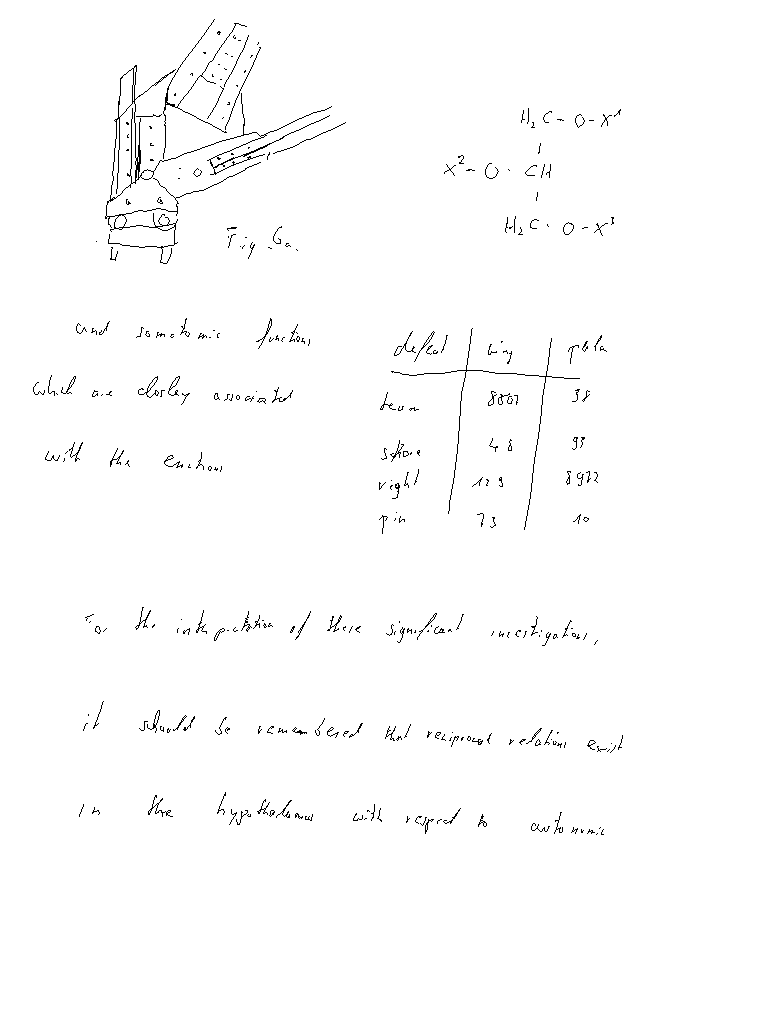 Fig. 6a.
H₂C - O - X¹
X² - O - CH
H₂C - O - X³
and somatomic functions
which are closley associated
with the
defeat
38
48 93
right 129 8972
pin 73 10
For the of these significant investigations,
it should be remembered that reciprocal relations exist
in the hypothalamus with respect to autonomic